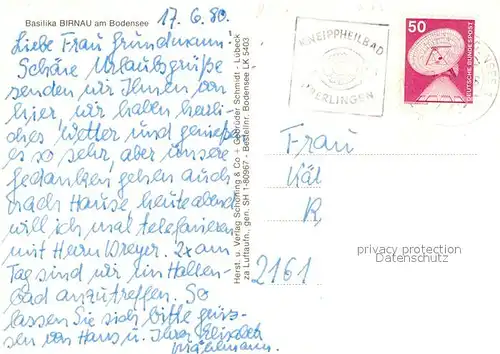 Basilika BIRNAU am Bodensee
17. 6. 80.
Liebe Frau Grundmann
Schöne Urlaubsgrüße
senden wir Ihnen von
hier, wir haben herrli-
ches Wetter und genießen
es so sehr, aber unsere
Gedanken gehen auch
nach Hause heute abend
will ich mal telefonieren
mit Herrn Dreyer. 2x am
Tag sind wir im Hallen-
bad anzutreffen. So
lassen Sie sich bitte grüs-
sen von Hans u. Ihrer Elisabeth
Herst. u. Verlag Schöning & Co + Gebrüder Schmidt - Lübeck
za Luftaufn., gen. SH 1-80967 - Bestellnr. Bodensee LK 5403
KNEIPPHEILBAD
ÜBERLINGEN
50
DEUTSCHE BUNDESPOST
Frau
Kät
R
2161
privacy protection
Datenschutz